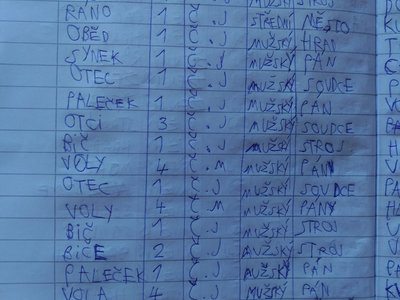 RÁNO 1 Č.J STŘEDNÍ MĚSTO
OBĚD 1 Č.J MUŽSKÝ HRAD
SYNEK 1 Č.J MUŽSKÝ PÁN
OTEC 1 Č.J MUŽSKÝ SOUDCE
PALEČEK 1 Č.J MUŽSKÝ PÁN
OTCI 3 Č.J MUŽSKÝ SOUDCE
BIČ 1 Č.J MUŽSKÝ STROJ
VOLY 4 Č.M MUŽSKÝ PÁN
OTEC 1 Č.J MUŽSKÝ SOUDCE
VOLY 4 Č.M MUŽSKÝ PÁNY
BIČ 1 Č.J MUŽSKÝ STROJ
BIČE 2 Č.J MUŽSKÝ STROJ
PALEČEK 1 Č.J MUŽSKÝ PÁN
VOLA 4 Č.J MUŽSKÝ PÁN